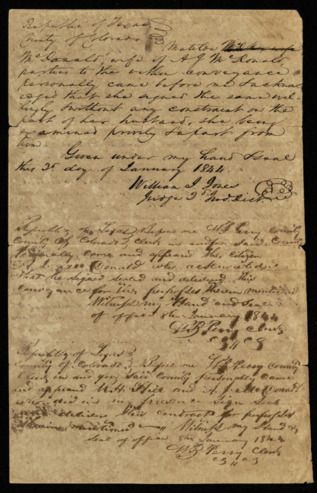 Republic of Texas
County of Colorado
Matilda
McDonald, wife of A J McDonald,
parties to the within conveyance
personally came before me & acknow
edged that she signed the same wil
lingly & without any constraint on the
part of her husband, she been
examined privily & apart from
him
Given under my hand & seal
this 3d day of January 1844
William J Jones
Judge 2d Judicial
Republic of Texas Before me W B Perry County
County of Colorado Clerk in and for said County
Personally came and appeared the citizen
Donald who acknowledged
that he signed sealed and delivered this
conveyance for the purposes therein mentioned
Witness my Hand and Seal
of office 8th January 1844
W B Perry Clerk
C C C
Republic of Texas
County of Colorado Before me W B Perry County
Clerk in and for said County personally came
and appeared and A J McDonald
who did in my presence sign seal
deliver this contract for purposes
therein mentioned Witness my Hand &
Seal of office 8th January 1844
W B Perry Clerk
C C C